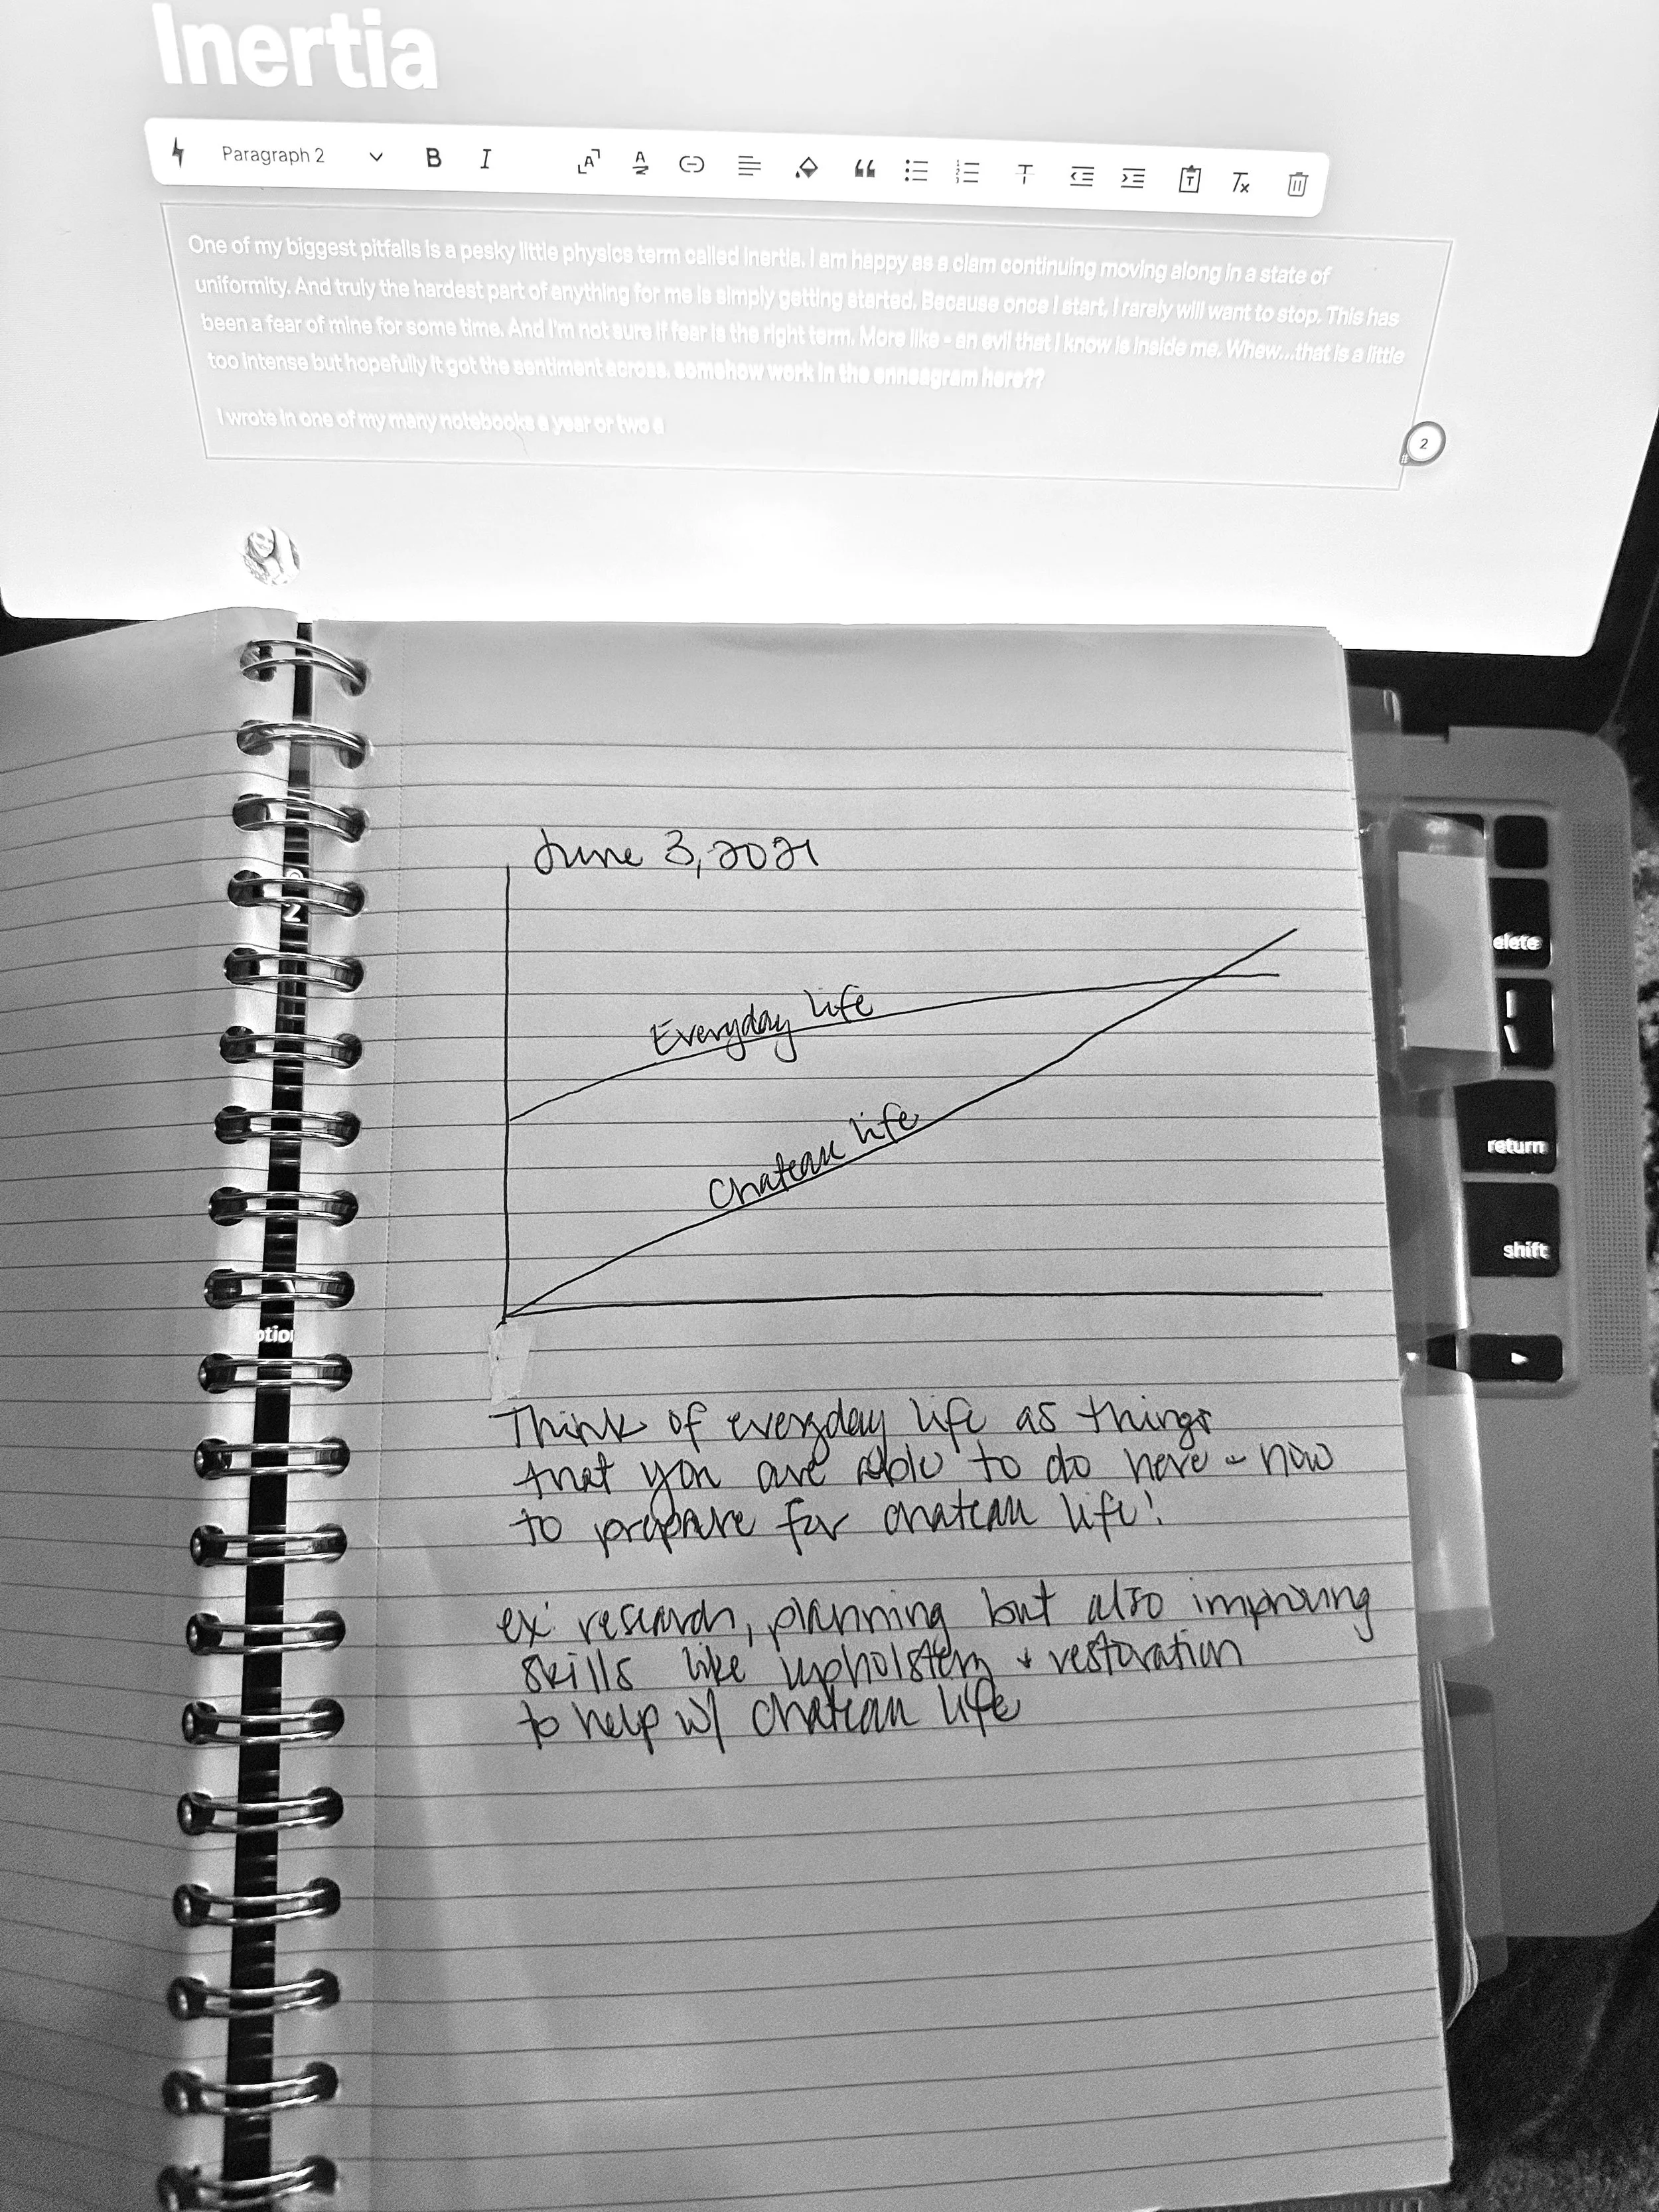 Inertia
Paragraph 2
B I
One of my biggest pitfalls is a pesky little physics term called Inertia. I am happy as a clam continuing moving along in a state of
uniformity. And truly the hardest part of anything for me is simply getting started. Because once I start, I rarely will want to stop. This has
been a fear of mine for some time. And I'm not sure if fear is the right term. More like - an evil that I know is inside me. Whew...that is a little
too intense but hopefully it got the sentiment across. somehow work in the enneagram here??
I wrote in one of my many notebooks a year or two a
2
June 3, 2021
Everyday life
Chateau life
Think of everyday life as things
that you are able to do here + now
to prepare for chateau life!
ex: research, planning but also improving
skills like upholstery + restoration
to help w/ chateau life
elete
return
shift
2
ption